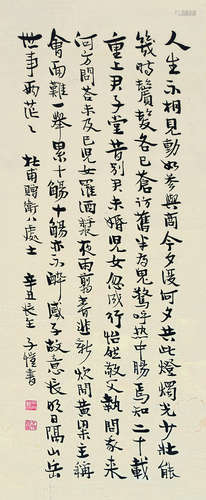 人生不相見動如參與商今夕復何夕共此燈燭光少壯能
幾時鬢髮各已蒼訪舊半為鬼驚呼熱中腸焉知二十載
重上君子堂昔別君未婚兒女忽成行怡然敬父執問我來
何方問答未及已兒女羅酒漿夜雨翦春韭新炊間黃粱主稱
會面難一舉累十觴十觴亦不醉感子故意長明日隔山岳
世事兩茫々
杜甫贈衛八處士 辛丑 子愷書